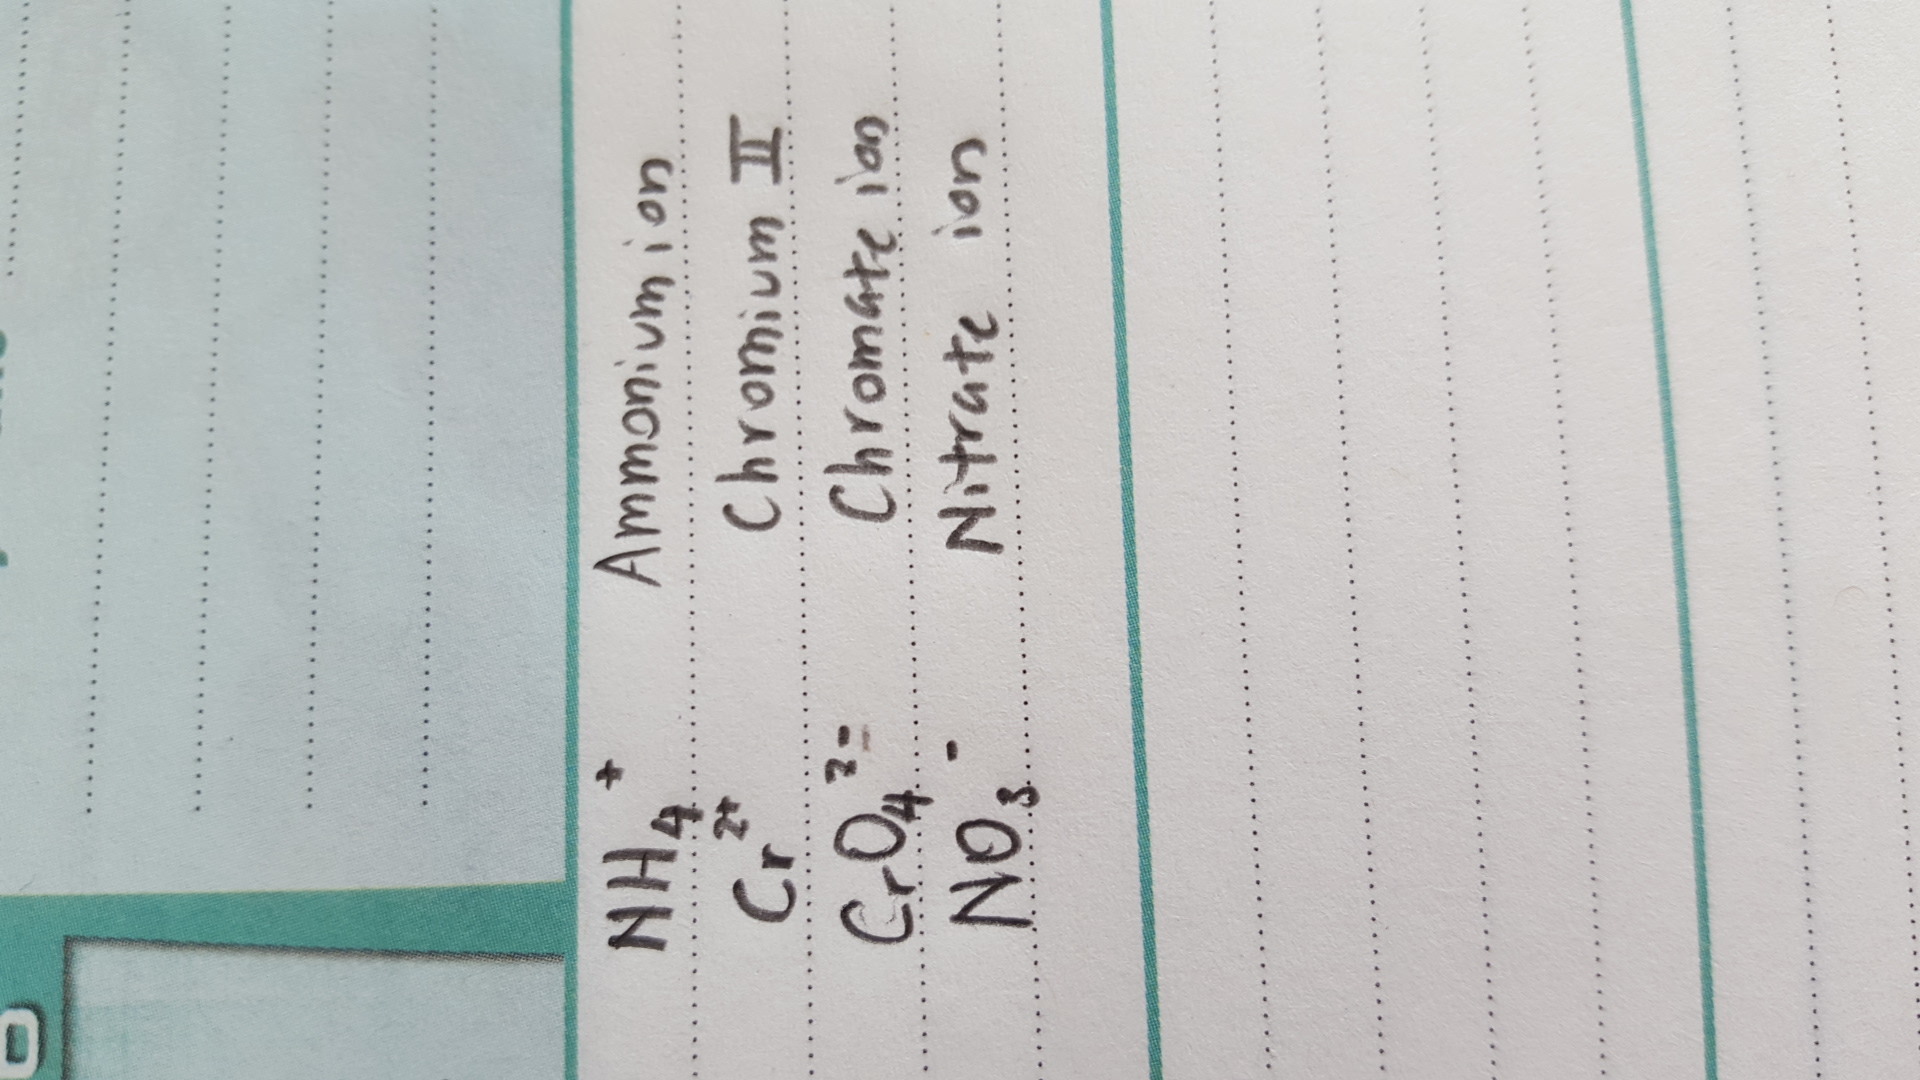 NH₄⁺ Ammonium ion
Cr²⁺ Chromium II
CrO₄²⁻ Chromate ion
NO₃⁻ Nitrate ion